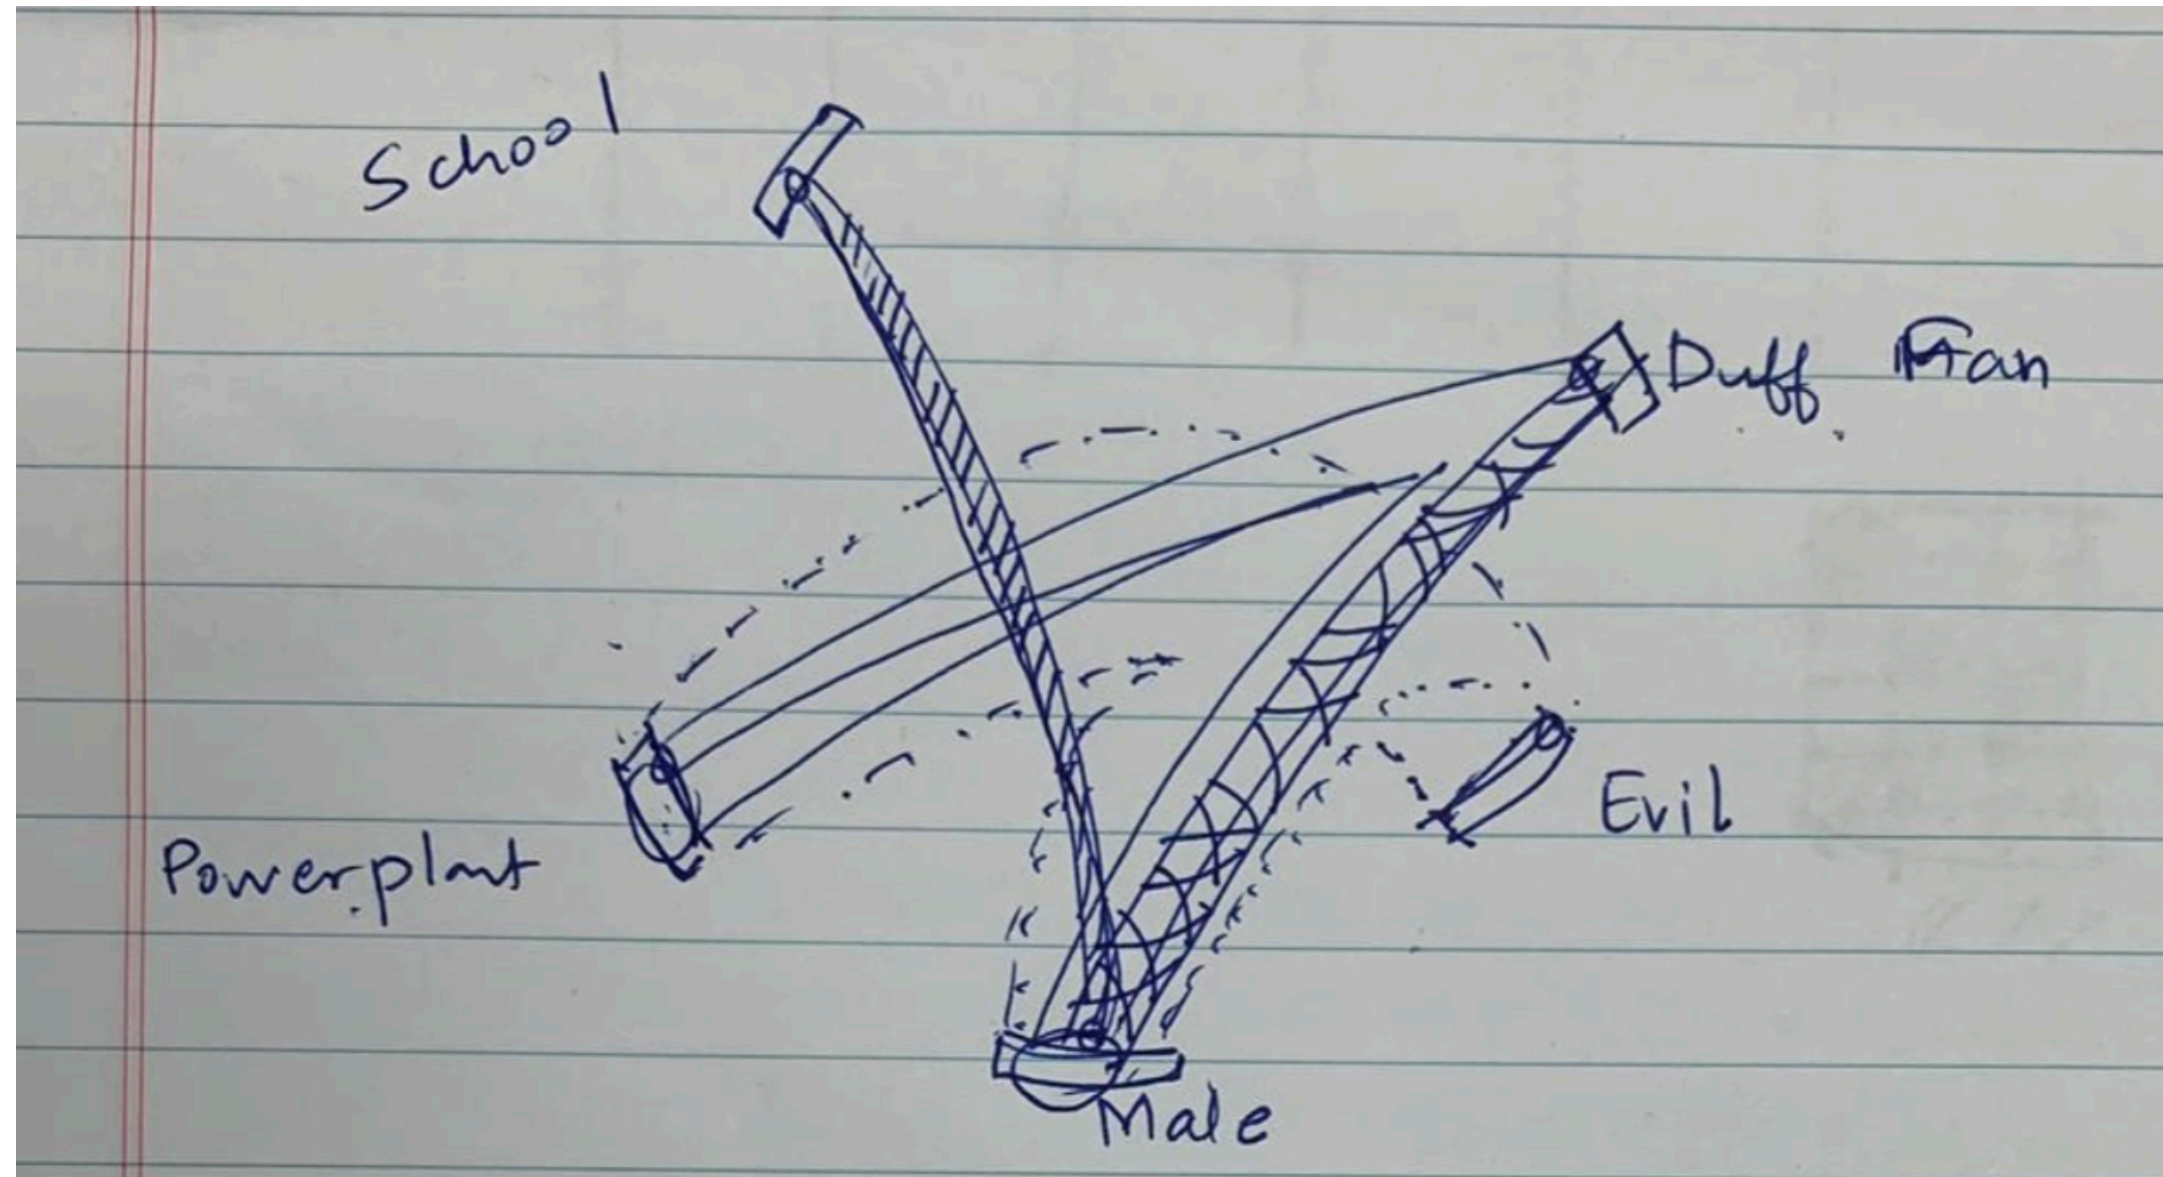 School
Duff Fan
Evil
Powerplant
Male